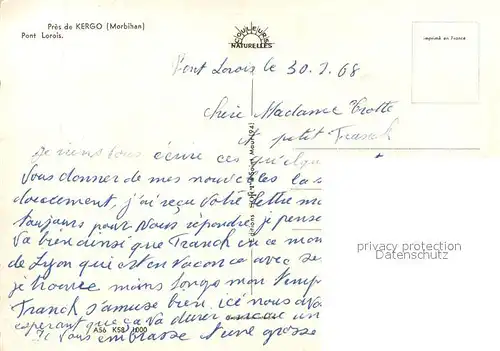 Près de KERGO (Morbihan)
Pont Lorois.
COULEURS NATURELLES
Imprimé en France
Pont Lorois le 30.7.68
Chère Madame Trotte
et petit Franck
Je viens vous écrire ces quelqu
vous donner de mes nouvelles la
doucement, j'ai reçu votre lettre
toujours pour vous répondre, je pense
va bien ainsi que Franck ce mon
de Lyon qui est en vacance avec se
je trouve moins longs mon temp
Franck s'amuse bien, ici nous avo
espérant que ça va durer encore un
Je vous embrasse d'une grosse
A56 K58 1000
privacy protection
Datenschutz